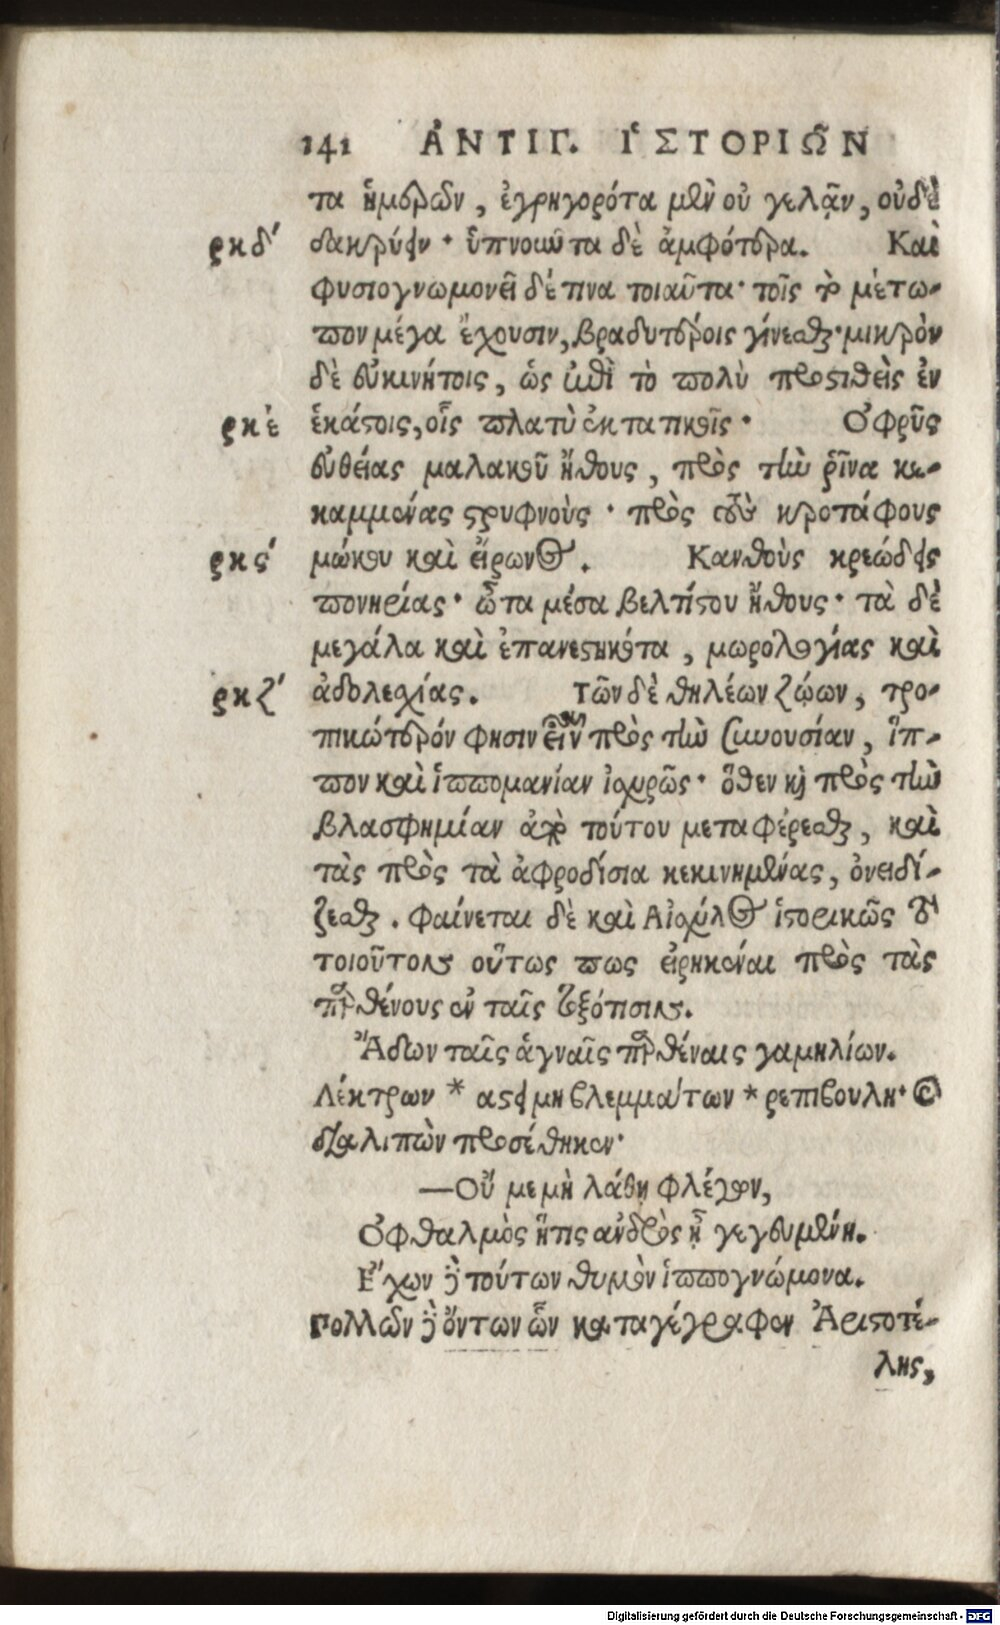 141 ἈΝΤΙΓ. ἹΣΤΟΡΙΩ͂Ν
τα ἡμερῶν, ἐγρηγορότα μὲν οὐ γελᾷν, οὐδὲ
ρκδʹ δακρύειν· ὑπνοῦντα δὲ ἀμφότερα. Καὶ
φυσιογνωμονεῖ δέ τινα τοιαῦτα· τοῖς τὸ μέτω-
πον μέγα ἔχουσιν, βραδυτέροις γίνεσθαι· μικρὸν
δὲ εὐκινήτοις, ὡς ἐπὶ τὸ πολὺ προστιθεὶς ἐν
ρκέ ἑκάστοις, οἷς πλατὺ ἐκστατικοῖς· Ὀφρῦς
εὐθείας μαλακοῦ ἤθους, πρὸς τὴν ῥῖνα κε-
καμμένας στρυφνοὺς· πρὸς τοὺς κροτάφους
ρκϛʹ μώκου καὶ εἴρωνος. Κανθοὺς κρεώδεις
πονηρίας· ὦτα μέσα βελτίστου ἤθους· τὰ δὲ
μεγάλα καὶ ἐπανεστηκότα, μωρολογίας καὶ
ρκζʹ ἀδολεσχίας. Τῶν δὲ θηλέων ζῴων, τρο-
πικώτερόν φησιν εἶναι πρὸς τὴν συνουσίαν, ἵπ-
πον καὶ ἱππομανίαν ἰσχυρῶς· ὅθεν καὶ πρὸς τὴν
βλασφημίαν ἀπὸ τούτου μεταφέρεσθαι, καὶ
τὰς πρὸς τὰ ἀφροδίσια κεκινημένας, ὀνειδί-
ζεσθαι. Φαίνεται δὲ καὶ Αἰσχύλος ἱστορικῶς τὰ
τοιοῦτον οὕτως πως εἰρηκέναι πρὸς τὰς
παρθένους ἐν ταῖς Τοξότισιν.
Ἄδων ταῖς ἁγναῖς παρθέναις γαμηλίων.
Λέκτρων * αστει μὴ βλεμμάτων * ρεπιβουλη· καὶ
διαλιπὼν προσέθηκεν·
—Οὔ με μὴ λάθῃ φλέγων,
Ὀφθαλμὸς ἥτις ἀνδρὸς ᾖ γεγευμένη.
Ἔχων δὲ τούτων θυμὸν ἱππογνώμονα.
Πολλῶν δὲ ὄντων ὧν καταγέγραφεν Ἀριστοτέ-
λης,
Digitalisierung gefördert durch die Deutsche Forschungsgemeinschaft - DFG